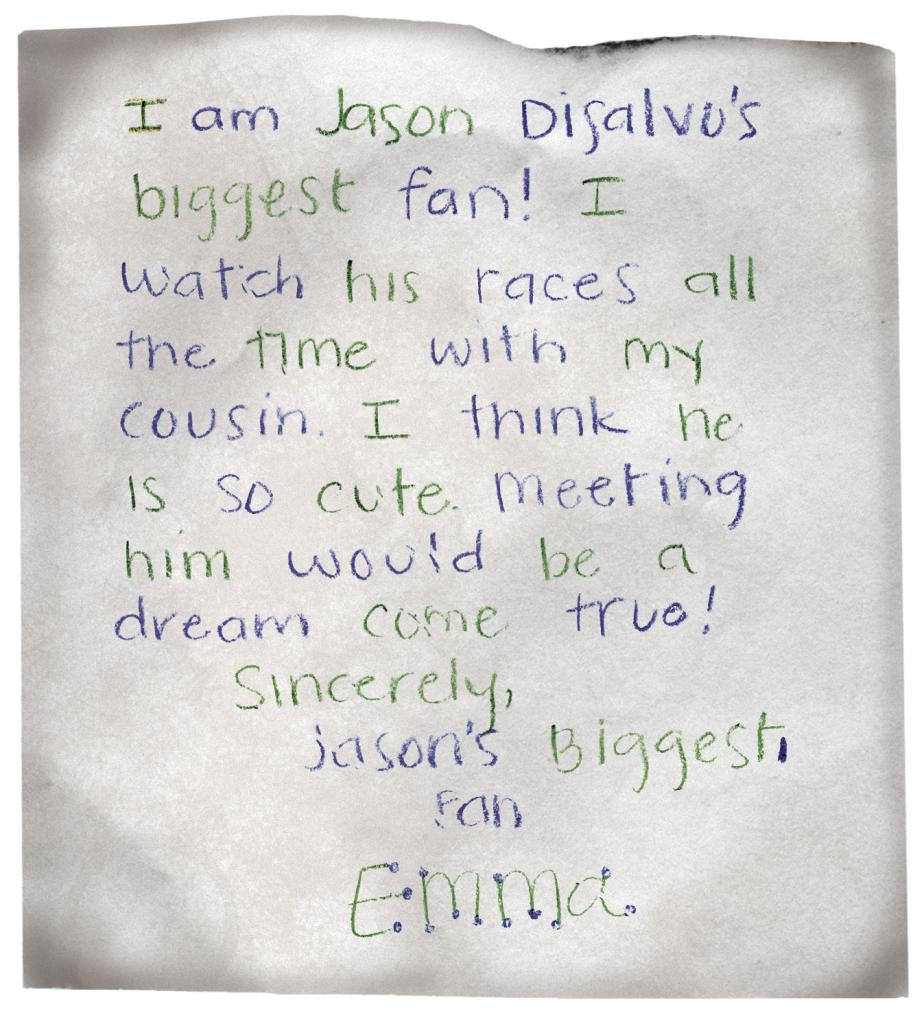 I am Jason Disalvo's
biggest fan! I
watch his races all
the time with my
cousin. I think he
is so cute. Meeting
him would be a
dream come true!
Sincerely,
jason's Biggest
Fan
Emma